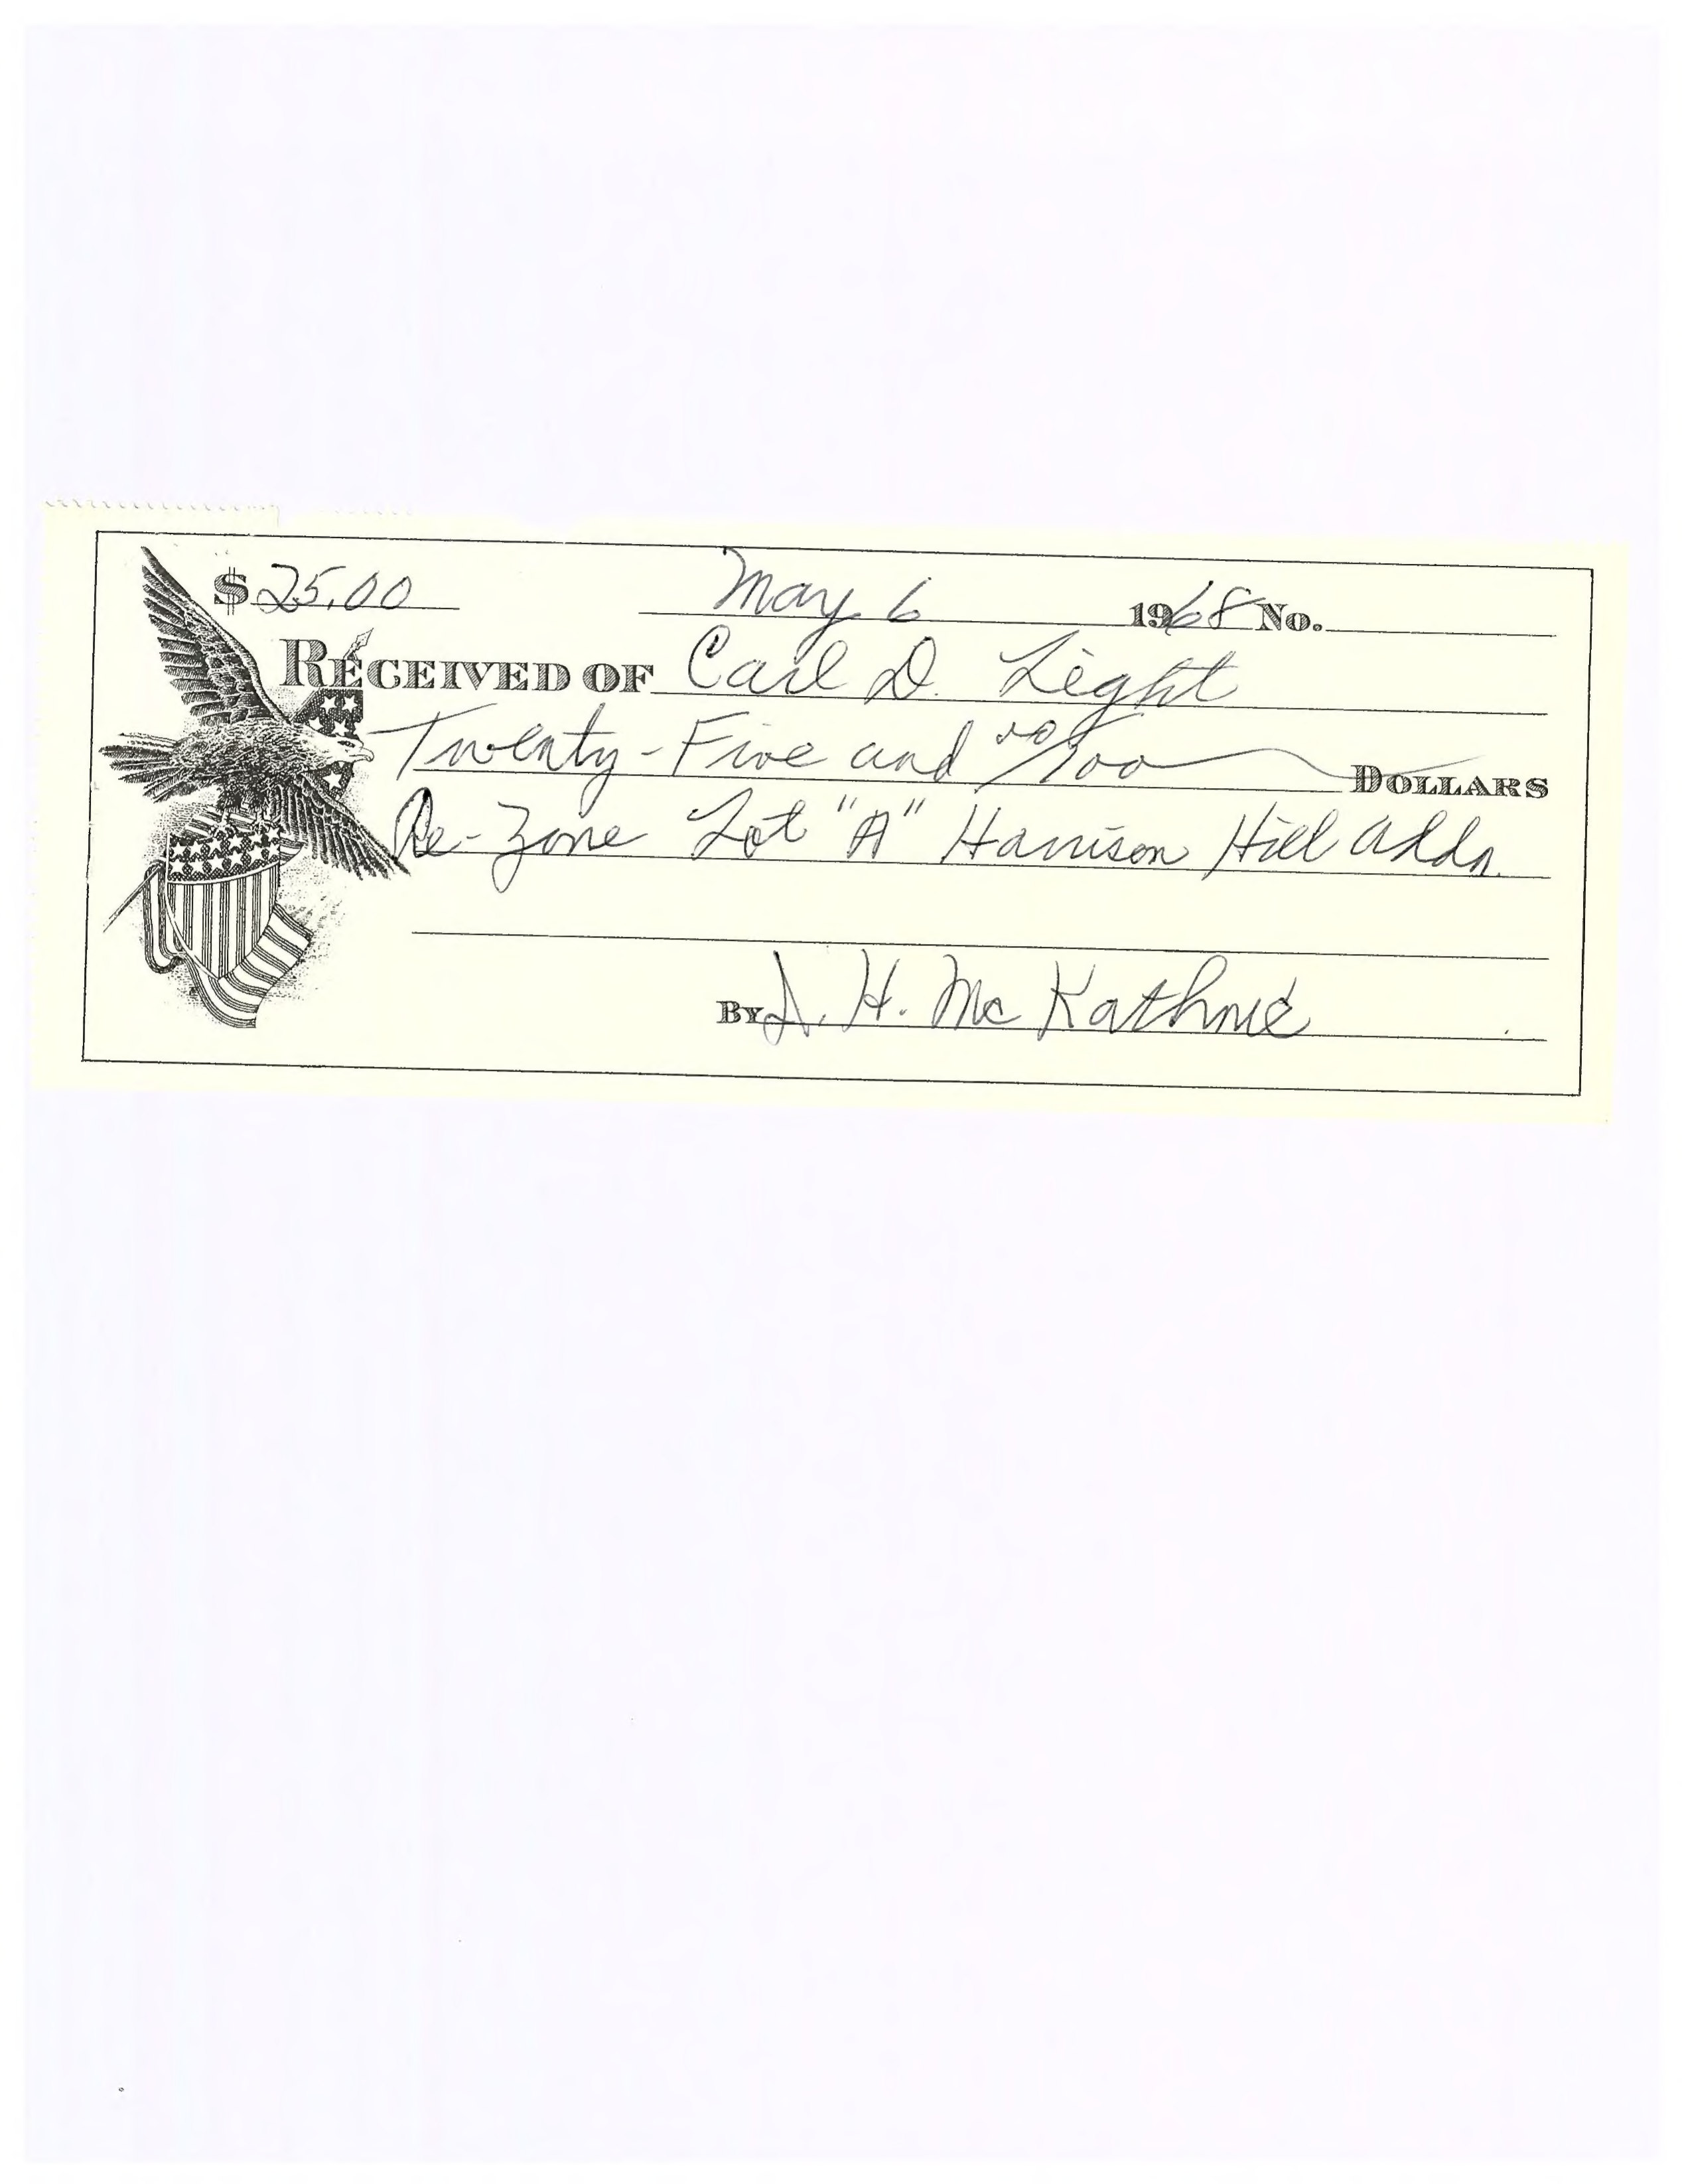 $ 25.00 May 6 1968 No.
RECEIVED OF Carl D. Light
Twenty-Five and 00/100 DOLLARS
Re-Zone Lot "A" Harrison Hill Addn.
BY H. Mc Kathnie